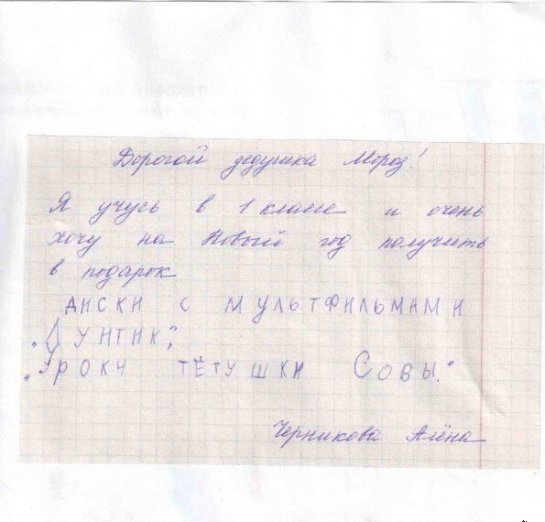 Дорогой дедушка Мороз!
Я учусь в 1 классе и очень
хочу на Новый год получить
в подарок
ДИСКИ С МУЛЬТФИЛЬМАМИ
"ЛУНТИК",
"УРОКИ ТЁТУШКИ СОВЫ."
Черникова Алёна